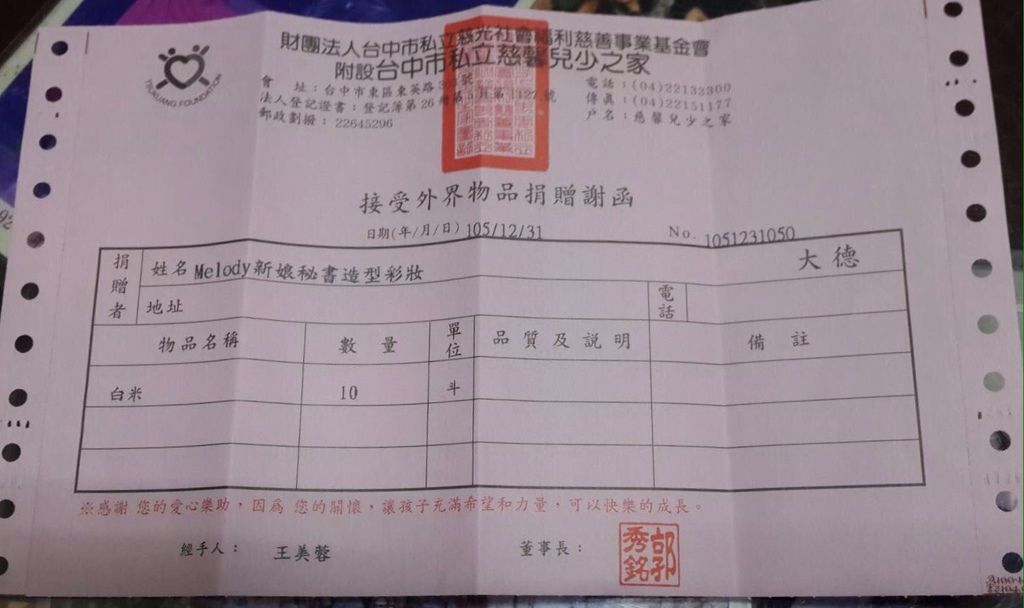 財團法人台中市私立慈光社會福利慈善事業基金會
附設台中市私立慈馨兒少之家
TSUKUANG FOUNDATION
會 址:台中市東區東英路
法人登記證書:登記簿第26
郵政劃撥:22645296
電話:(04)22133300
傳真:(04)22151177
戶名:慈馨兒少之家
接受外界物品捐贈謝函
日期(年/月/日) 105/12/31
No. 1051231050
捐贈者 姓名 Melody新娘秘書造型彩妝 大德
地址 電話
物品名稱 數量 單位 品質及説明 備註
白米 10 斗
※感謝 您的愛心樂助,因為 您的關懷,讓孩子充滿希望和力量,可以快樂的成長。
經手人: 王美蓉 董事長: 郭秀銘